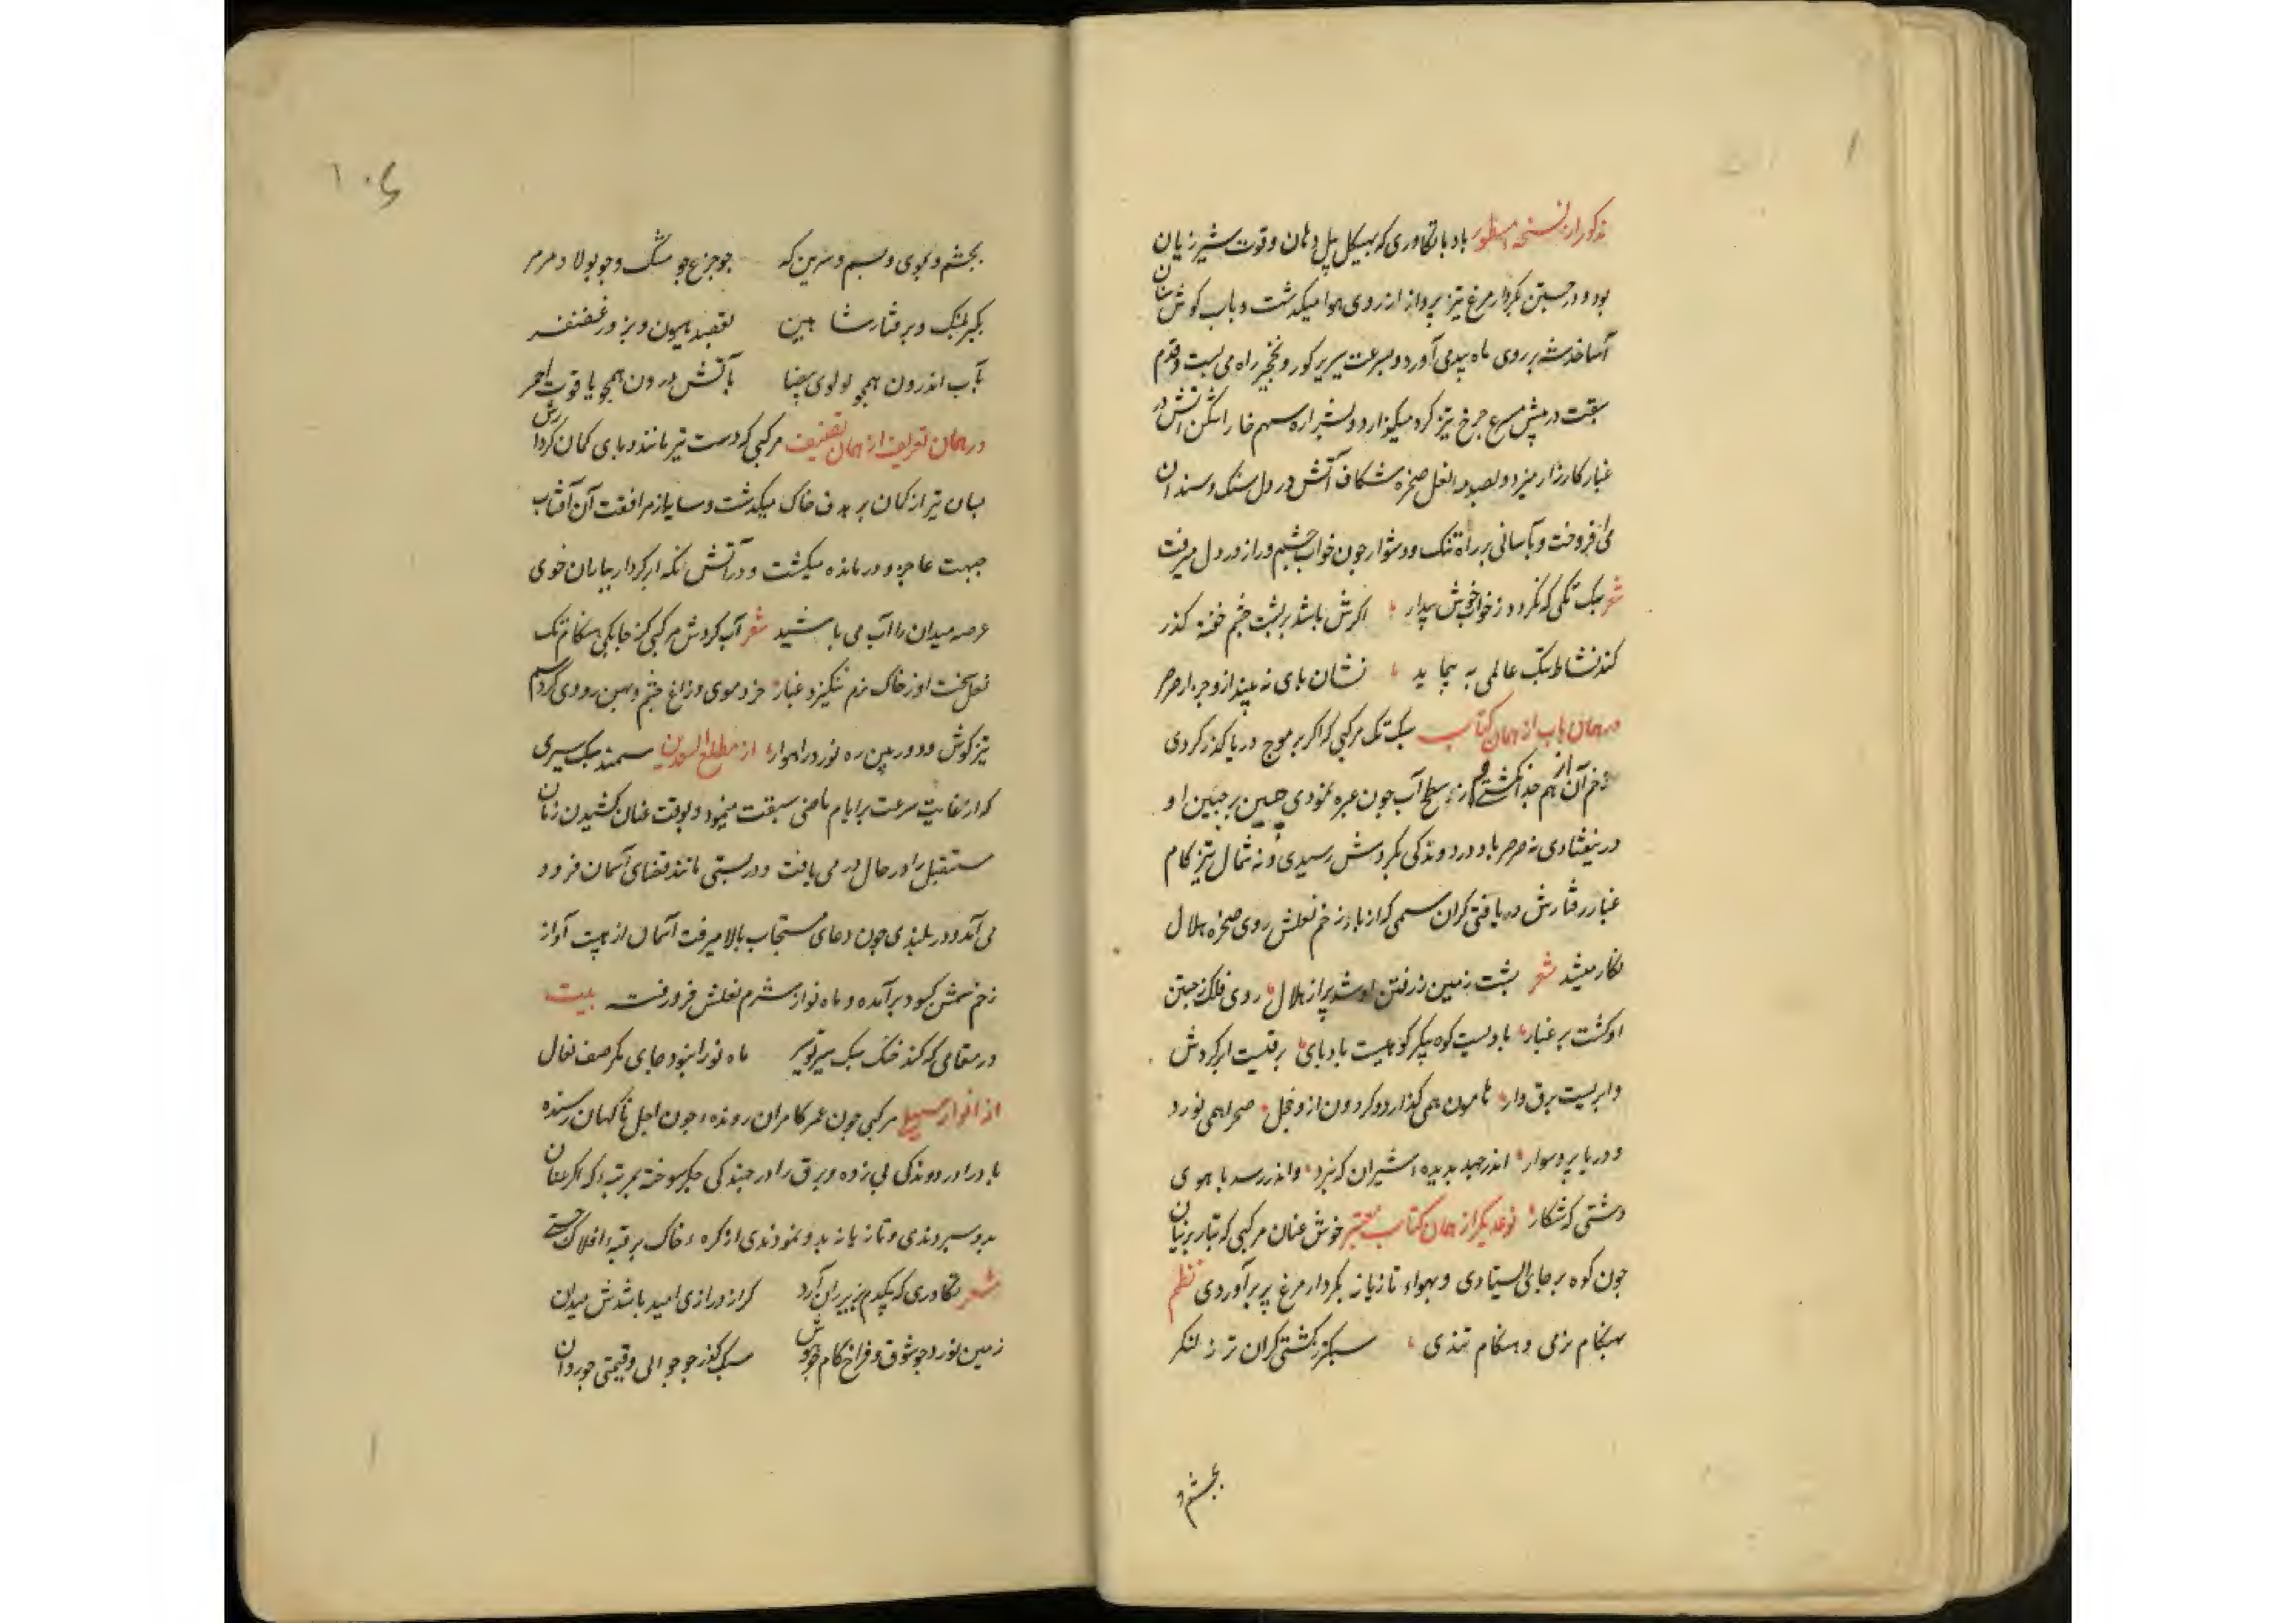 مذکور از نسخه مسطور باد با تکاوری که بهیکل پیل دمان و قوت شیر ژیان
بود و در جستن بکردار مرغ تیز پرواز از روی هوا میکذشت و باب کوش سنان
آسا خدشه بر روی ماه پدید می آورد و بسرعت سیر بر کور و نخجیر راه می بست و قدم
سبقت در پیش سرع چرخ تیز کرد میکزارد و بشراره سم خارا شکن آتش در
غبار کارزار میزد و بصدمه نعل صخره شکاف آتش در دل سنک و سندان
می افروخت و بآسانی بر راه تنک و دشوار جون خواب در چشم و راز در دل میرفت
شعر سبک تکی که نکردد ز خواب خوش بیدار اکرش باشد بر پشت چشم خفته کذر
کند نشاط یک عالمی به پیماید نشان پای نه بیند ازو جز از صرصر
در همان باب از همان کتاب سبک تک مرکبی که اکر بر موج دریا کذر کردی
از هم جدا نکشتی و از سطح آب جون عبره نمودی چین بر جبین او
در نیفتادی نه صرصر باد در دوندکی بکردش رسیدی و نه شمال تیز کام
غبار رفتارش در یافتی کران سمی که از باد زخم نعلش روی صخره هلال
نکار میشد شعر پشت زمین ز رفتن او شد پر از هلال روی فلک ز جستن
او کشت پر غبار بادیست کوه پیکر کوهیست باد پای برقیست ابر کردش
و ابریست برق وار هامون همی کذارد و کردون ازو خجل صحرا همی نورد
و دریا برو سوار اندر جهد بدیده شیران که نبرد و اندر رسد باهوی
دشتی که شکار نوعدیکر از همان کتاب معتبر خوش عنان مرکبی که بتار پرنیان
جون کوه بر جای ایستادی و بهواء تازیانه بکردار مرغ پر برآوردی نظم
بهنکام نرمی و هنکام تندی سبکتر ز کشتی کران تر ز لنکر
بچشم و
۱۰۶
بچشم و بموی و بسم و سرین که جو جزع جو مشک و جو بولاد و مرمر
بکبر پلنک و برفتار شاهین بقصد هیون و بزور غضنفر
بآب اندرون همجو لولوی بیضا بآتش درون همجو یاقوت احمر
در همان تعریف از همان تصنیف مرکبی که دست تیر مانند و پای کمان کردارش
بسان تیر از کمان بر هدف خاک میکذشت و سایه از مرافقت آن آفتاب
جبهت عاجز و درمانده میکشت و در آتش تکه ابر کردار بباران خوی
عرصه میدان را آب می پاشید شعر آب کردش مرکبی کز جابکی هنکام تک
نعل سخت او ز خاک نرم ننکیزد غبار خزه موی و زاغ جشم و بهن روی و کرد سم
تیز کوش و دوربین ره نورد راهوار از مطلع السعدین سمند سبک سیری
که از غایت سرعت بر ایام ماضی سبقت مینمود و بوقت عنان کشیدن زمان
مستقبل را در حال در می یافت و در پستی مانند قضای آسمان فرود
می آمد و در بلندی جون دعای مستجاب بالا میرفت آسمان از هیبت آواز
زخم سمش کبود برآمده و ماه نو از شرم نعلش فرو رفته بیت
در مقامی که کند خنک سبک سیر تو سیر ماه نو را نبود جای مکر صف نعال
از انوار سهیلی مرکبی جون عمر کامران رونده و جون اجل ناکهان رسنده
باد را در دوندکی پی زده و برق را در جهندکی جکر سوخته بمرتبه که اکر عنان
بدو سپردندی و تازیانه بدو نمودندی از کره خاک بر قبه افلاک جستی
شعر تکاوری که بیکدم بزیر ران آرد کر از درازی امید باشدش میدان
زمین نورد جو شوق و فراخ کام جو سبک کذر جو جوانی و قیمتی جو روان